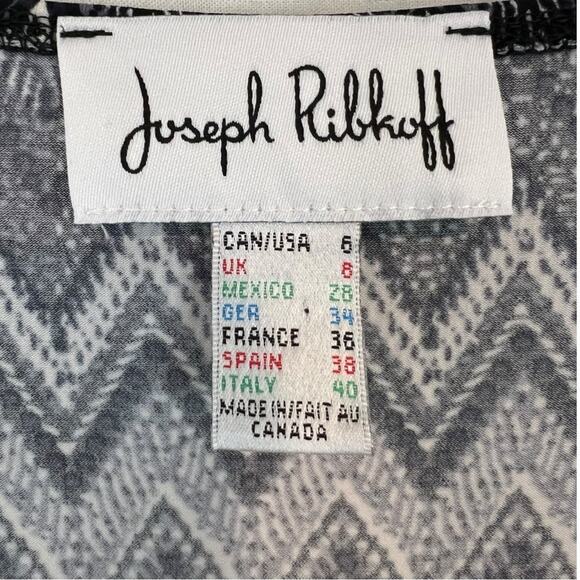 Joseph Ribkoff
CAN/USA 6
UK 8
MEXICO 28
GER 34
FRANCE 36
SPAIN 38
ITALY 40
MADE IN/FAIT AU
CANADA